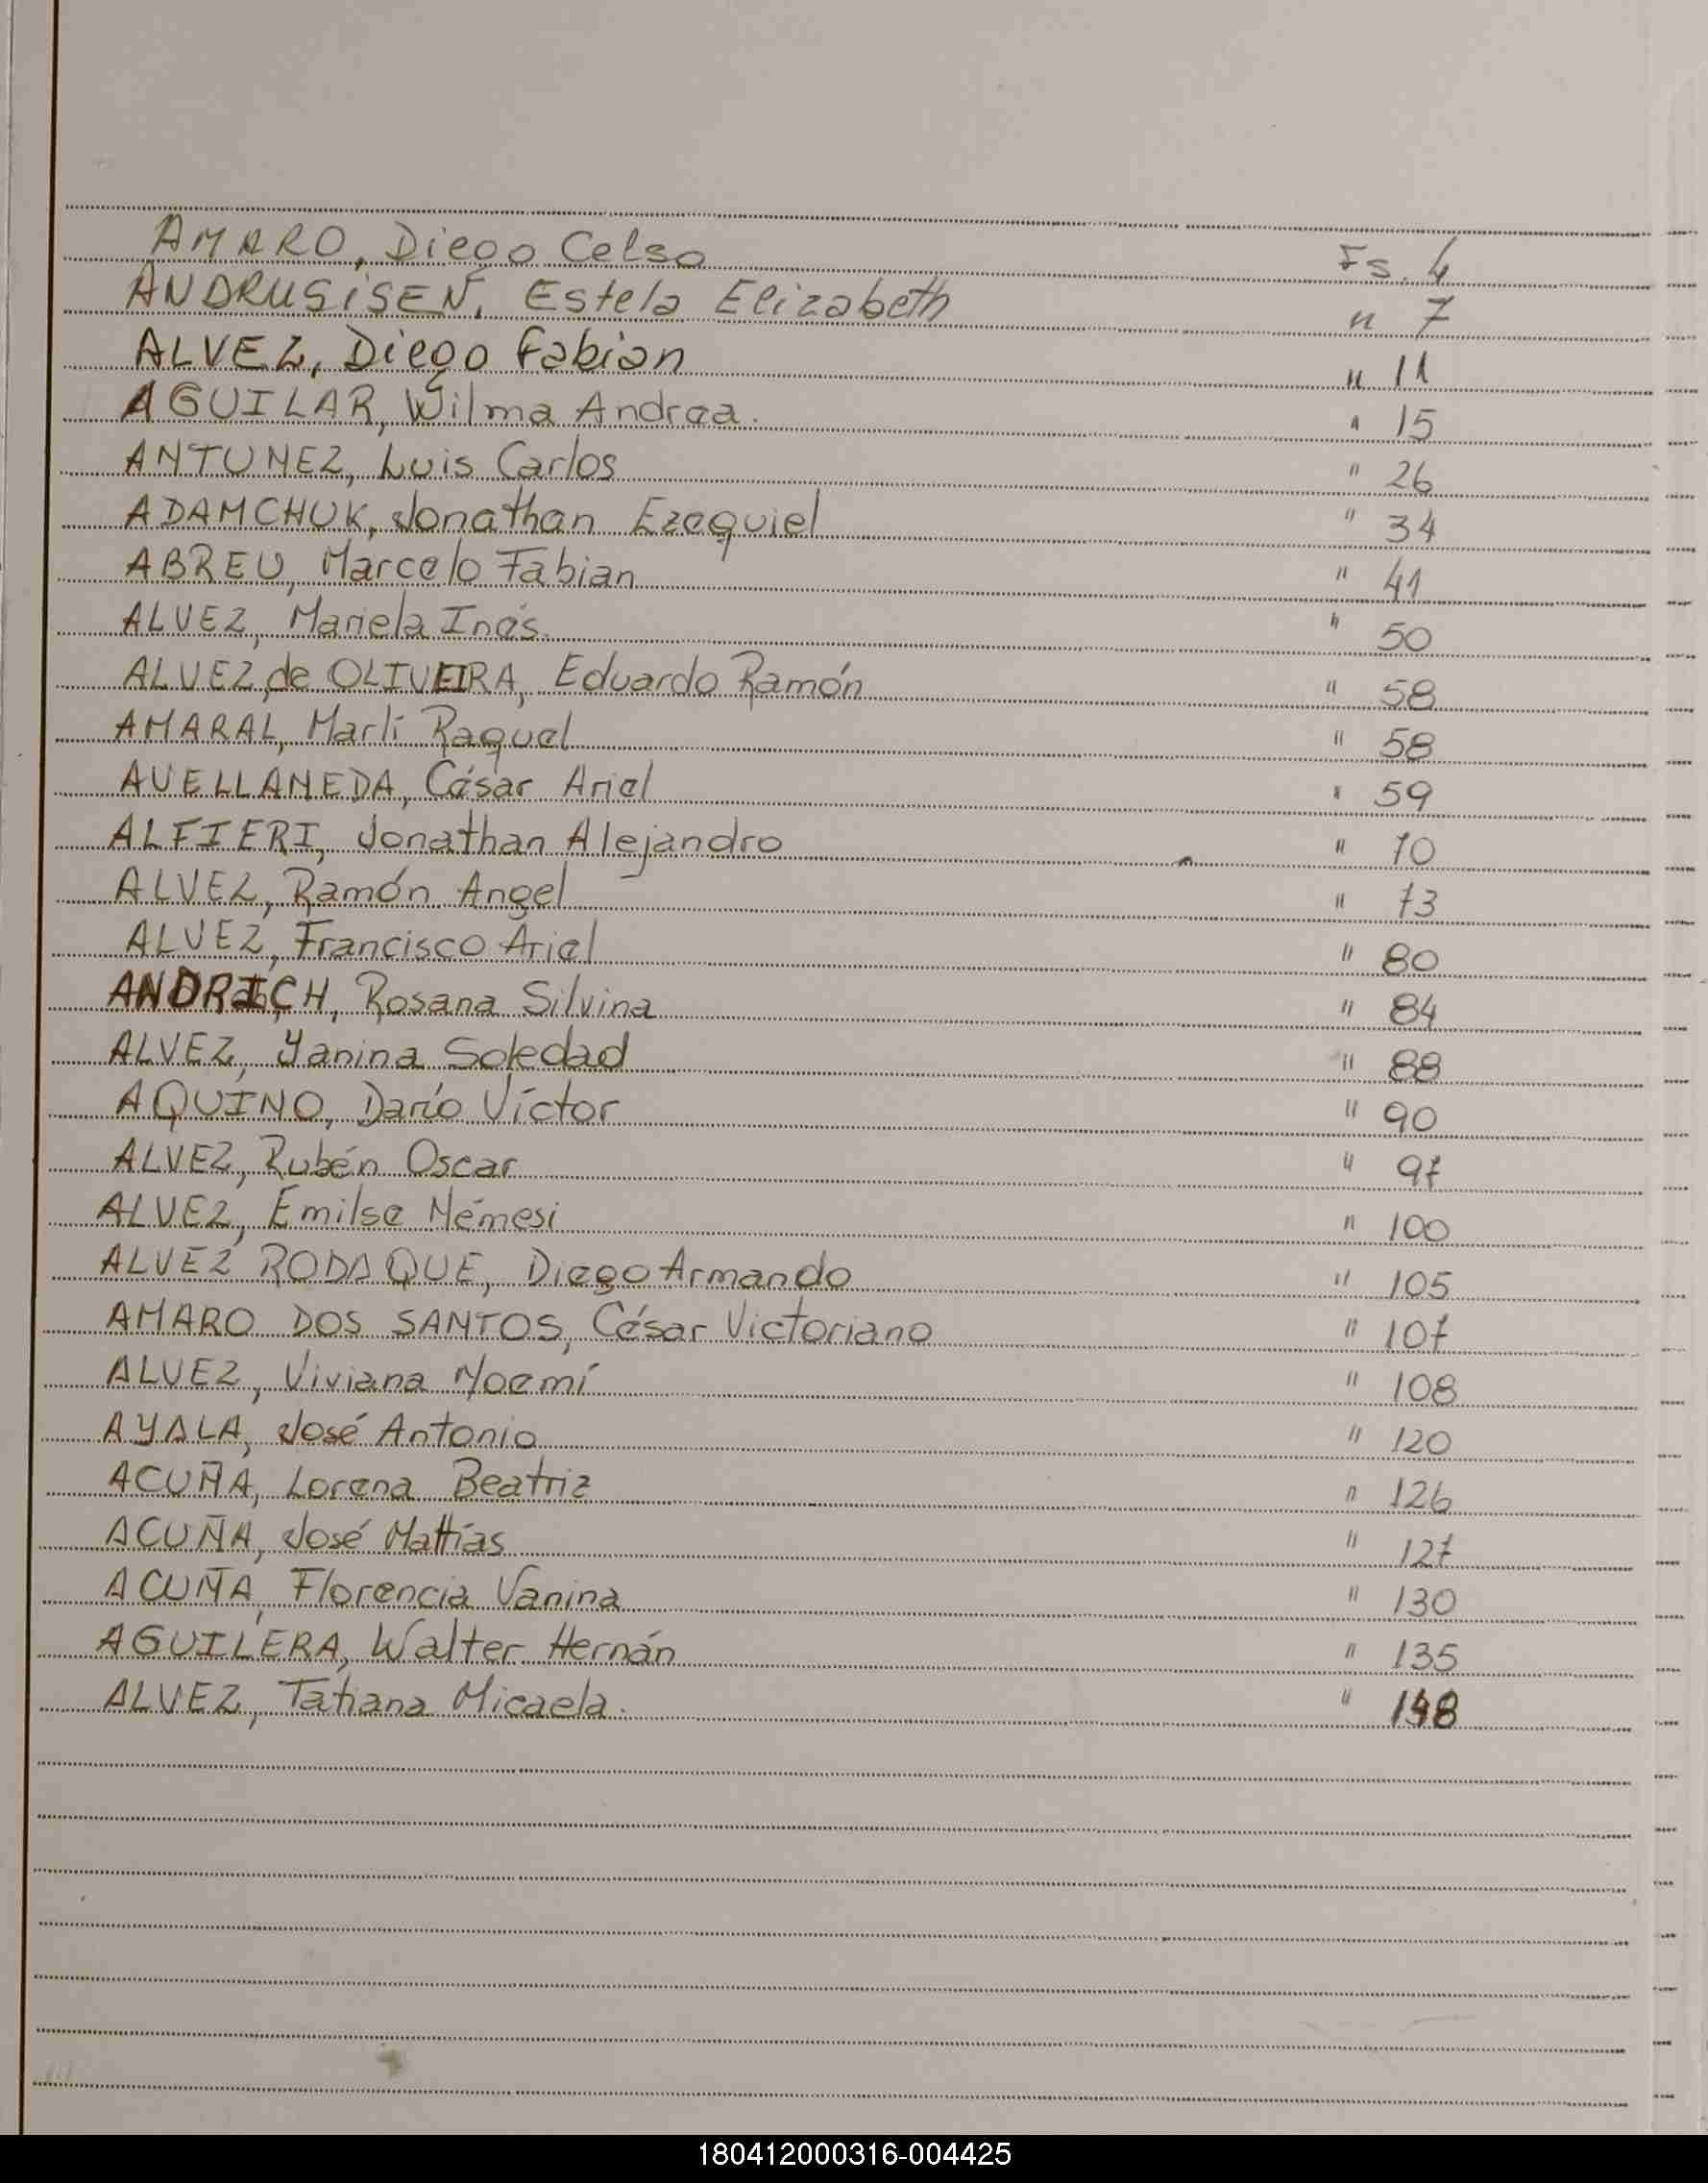 AMARO, Diego Celso Fs. 4
ANDRUSiSEN, Estela Elizabeth " 7
ALVEZ, Diego Fabian " 11
AGUILAR, Wilma Andrea. " 15
ANTUNEZ, Luis Carlos " 26
ADAMCHUK, Jonathan Ezequiel " 34
ABREU, Marcelo Fabian " 41
ALVEZ, Mariela Inés. " 50
ALVEZ de OLIVEIRA, Eduardo Ramón " 58
AMARAL, Marlí Raquel " 58
AVELLANEDA, César Ariel " 59
ALFIERI, Jonathan Alejandro " 70
ALVEZ, Ramón Angel " 73
ALVEZ, Francisco Ariel " 80
ANDRICH, Rosana Silvina " 84
ALVEZ, Yanina Soledad " 88
AQUINO, Darío Víctor " 90
ALVEZ, Rubén Oscar " 97
ALVEZ, Emilse Némesi " 100
ALVEZ RODAQUE, Diego Armando " 105
AMARO DOS SANTOS, César Victoriano " 107
ALVEZ, Viviana Noemí " 108
AYALA, José Antonio " 120
ACUÑA, Lorena Beatriz " 126
ACUÑA, José Mattías " 127
ACUÑA, Florencia Vanina " 130
AGUILERA, Walter Hernán " 135
ALVEZ, Tatiana Micaela. "
180412000316-004425